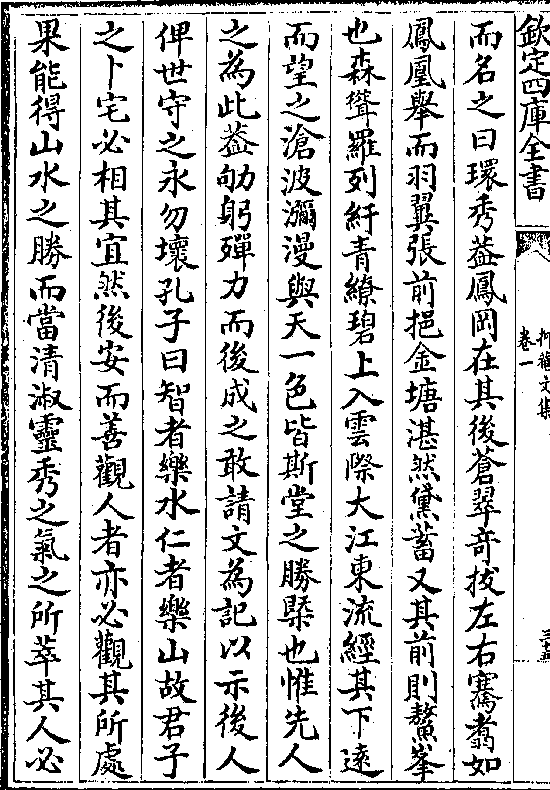 欽定四庫全書
抑菴文集
卷一
而名之曰環秀葢鳳岡在其後蒼翠竒拔左右騫翥如
鳳凰舉而羽翼張前挹金塘湛然黛蓄又其前則鰲峯
也森聳羅列紆青繚碧上入雲際大江東流經其下逺
而望之滄波瀰漫與天一色皆斯堂之勝槩也惟先人
之為此葢劬躬殫力而後成之敢請文為記以示後人
俾世守之永勿壞孔子曰智者樂水仁者樂山故君子
之卜宅必相其宜然後安而善觀人者亦必觀其所處
果能得山水之勝而當清淑靈秀之氣之所萃其人必